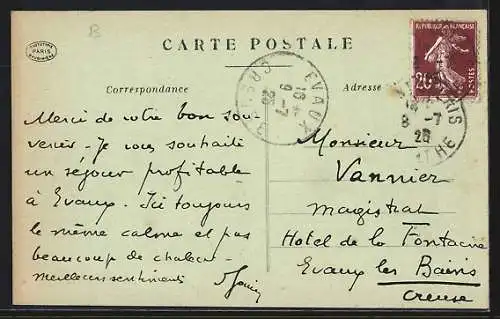 B
PARIS
CARTE POSTALE
REPUBLIQUE FRANÇAISE
20c
POSTES
EVAUX
CREUSE
16
9 - 7
26
PARIS
8 - 7
26
Correspondance
Adresse
Merci de votre bon sou-
venir - Je vous souhaite
un séjour profitable
à Evaux. Ici toujours
le même calme et pas
beaucoup de chaleur
meilleurs sentiments
Monsieur
Vannier
magistrat
Hotel de la Fontaine
Evaux les Bains
Creuse